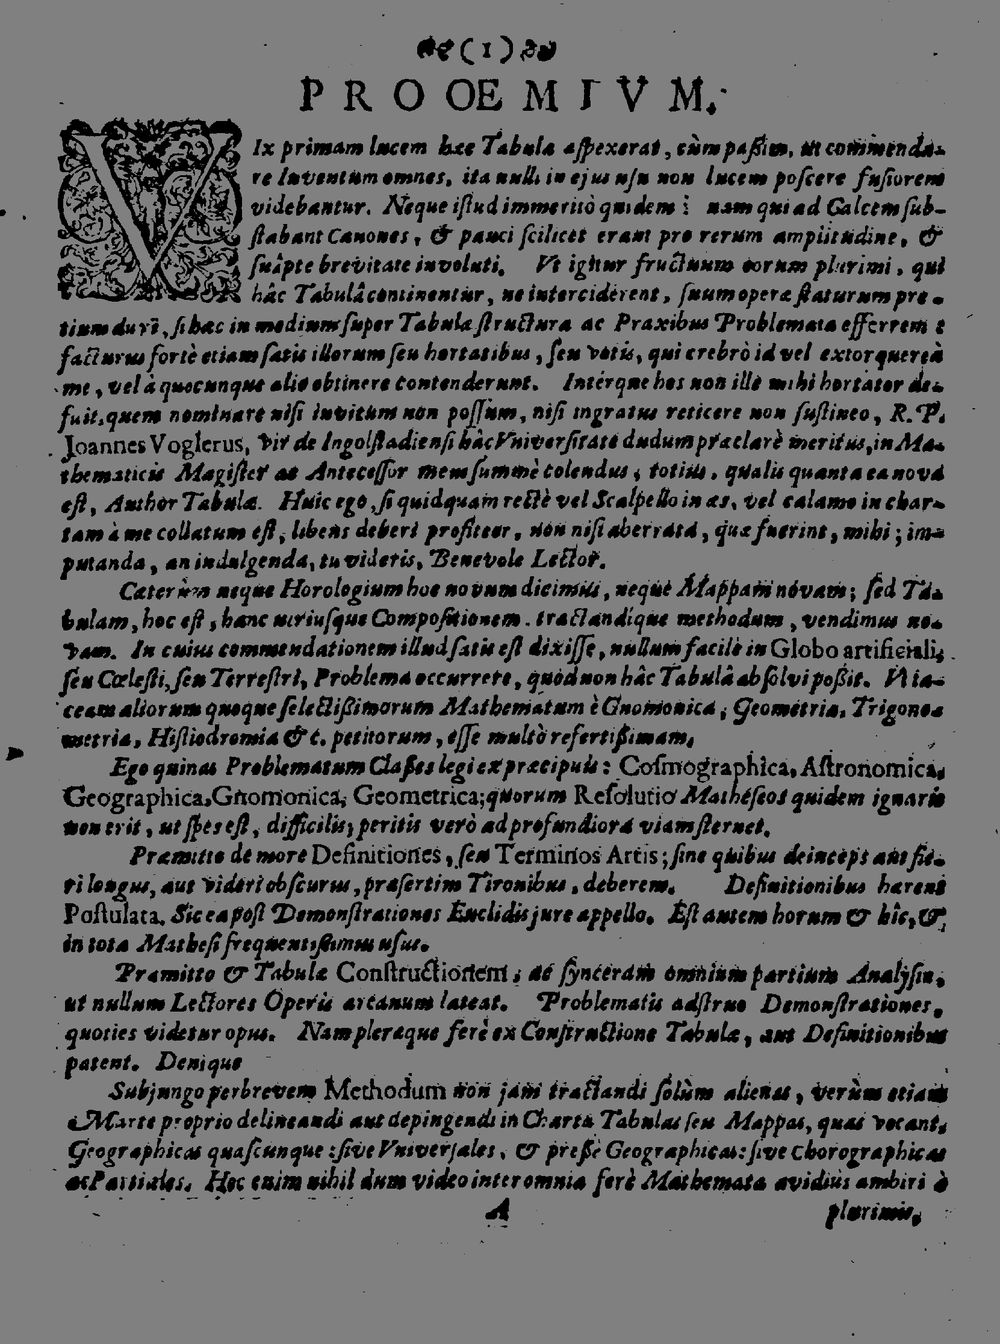 (1)
PROOEMIVM.
VIx primam lucem hæc Tabula aſpexerat, cùm paßim, ut commenda-
re Inventum omnes, ita nulli in ejus uſu non lucem poſcere fuſiorem
videbantur. Neque iſtud immeritò quidem: nam qui ad Calcem ſub-
ſtabant Canones, & pauci ſcilicet erant pro rerum amplitudine, &
ſuâpte brevitate involuti. Vt igitur fructuum eorum plurimi, qui
hâc Tabulâ continentur, ne interciderent, ſuum operæ ſtaturum pre-
tium duxi, ſi hæc in medium ſuper Tabulæ ſtructura ac Praxibus Problemata efferrem:
facturus fortè etiam ſatis illorum ſeu hortatibus, ſeu votis, qui crebrò id vel extorquere à
me, vel à quocunque alio obtinere contenderunt. Intérque hos non ille mihi hortator de-
fuit, quem nominare niſi invitum non poſſum, niſi ingratus reticere non ſuſtineo, R. P.
Joannes Voglerus, vir de Ingolſtadienſi hâc Vniverſitate dudum præclarè meritus, in Ma-
thematicis Magiſter ac Anteceſſor meus ſummè colendus, totius, qualis quanta ea nova
eſt, Author Tabulæ. Huic ego, ſi quidquam rectè vel Scalpello in æs, vel calamo in char-
tam à me collatum eſt, libens deberi profiteor, non niſi aberrata, quæ fuerint, mihi; im-
putanda, an indulgenda, tu videris, Benevole Lector.
Cæterùm neque Horologium hoc novum dicimus, neque Mappam novam; ſed Ta-
bulam, hoc eſt, hanc utriuſque Compoſitionem. tractandique methodum, vendimus no-
vam. In cuius commendationem illud ſatis eſt dixiſſe, nullum facilè in Globo artificiali,
ſeu Cœleſti, ſeu Terreſtri, Problema occurrere, quod non hâc Tabulâ abſolvi poßit. Ut ta-
ceam aliorum quoque ſelectißimorum Mathematum è Gnomonica, Geometria, Trigono-
metria, Hiſtiodromia &c. petitorum, eſſe multò refertißimam.
Ego quinas Problematum Claßes legi ex præcipuis: Coſmographica, Aſtronomica,
Geographica, Gnomonica, Geometrica; quorum Reſolutio Matheſeos quidem ignaris
non erit, ut ſpes eſt, difficilis; peritis verò ad profundiora viam ſternet.
Præmitto de more Definitiones, ſeu Terminos Artis; ſine quibus deinceps aut fie-
ri longus, aut videri obſcurus, præſertim Tironibus, deberem. Definitionibus hærent
Poſtulata. Sic ea poſt Demonſtrationes Euclidis jure appello. Eſt autem horum & hîc, &
in tota Matheſi frequentißimus uſus.
Præmitto & Tabulæ Conſtructionem, ac ſynceram omnium partium Analyſin,
ut nullum Lectores Operis arcanum lateat. Problematis adſtruo Demonſtrationes,
quoties videtur opus. Nam pleræque ferè ex Conſtructione Tabulæ, aut Definitionibus
patent. Denique
Subjungo perbrevem Methodum non jam tractandi ſolùm alienas, verùm etiam
Marte proprio delineandi aut depingendi in Charta Tabulas ſeu Mappas, quas vocant,
Geographicas quaſcunque: ſive Vniverſales, & preßè Geographicas: ſive Chorographicas
ac Partiales. Hoc enim nihil dum video inter omnia ferè Mathemata avidius ambiri à
A plurimis,